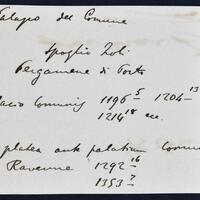 Palazzo del Comune
Spoglio Zoli
Pergamene di Porto
Palacio Comunis 1196⁵ 1204¹³
1214¹⁸ ecc.
platea ante palatium Comunis
Ravenne 1292¹⁶
1353⁷